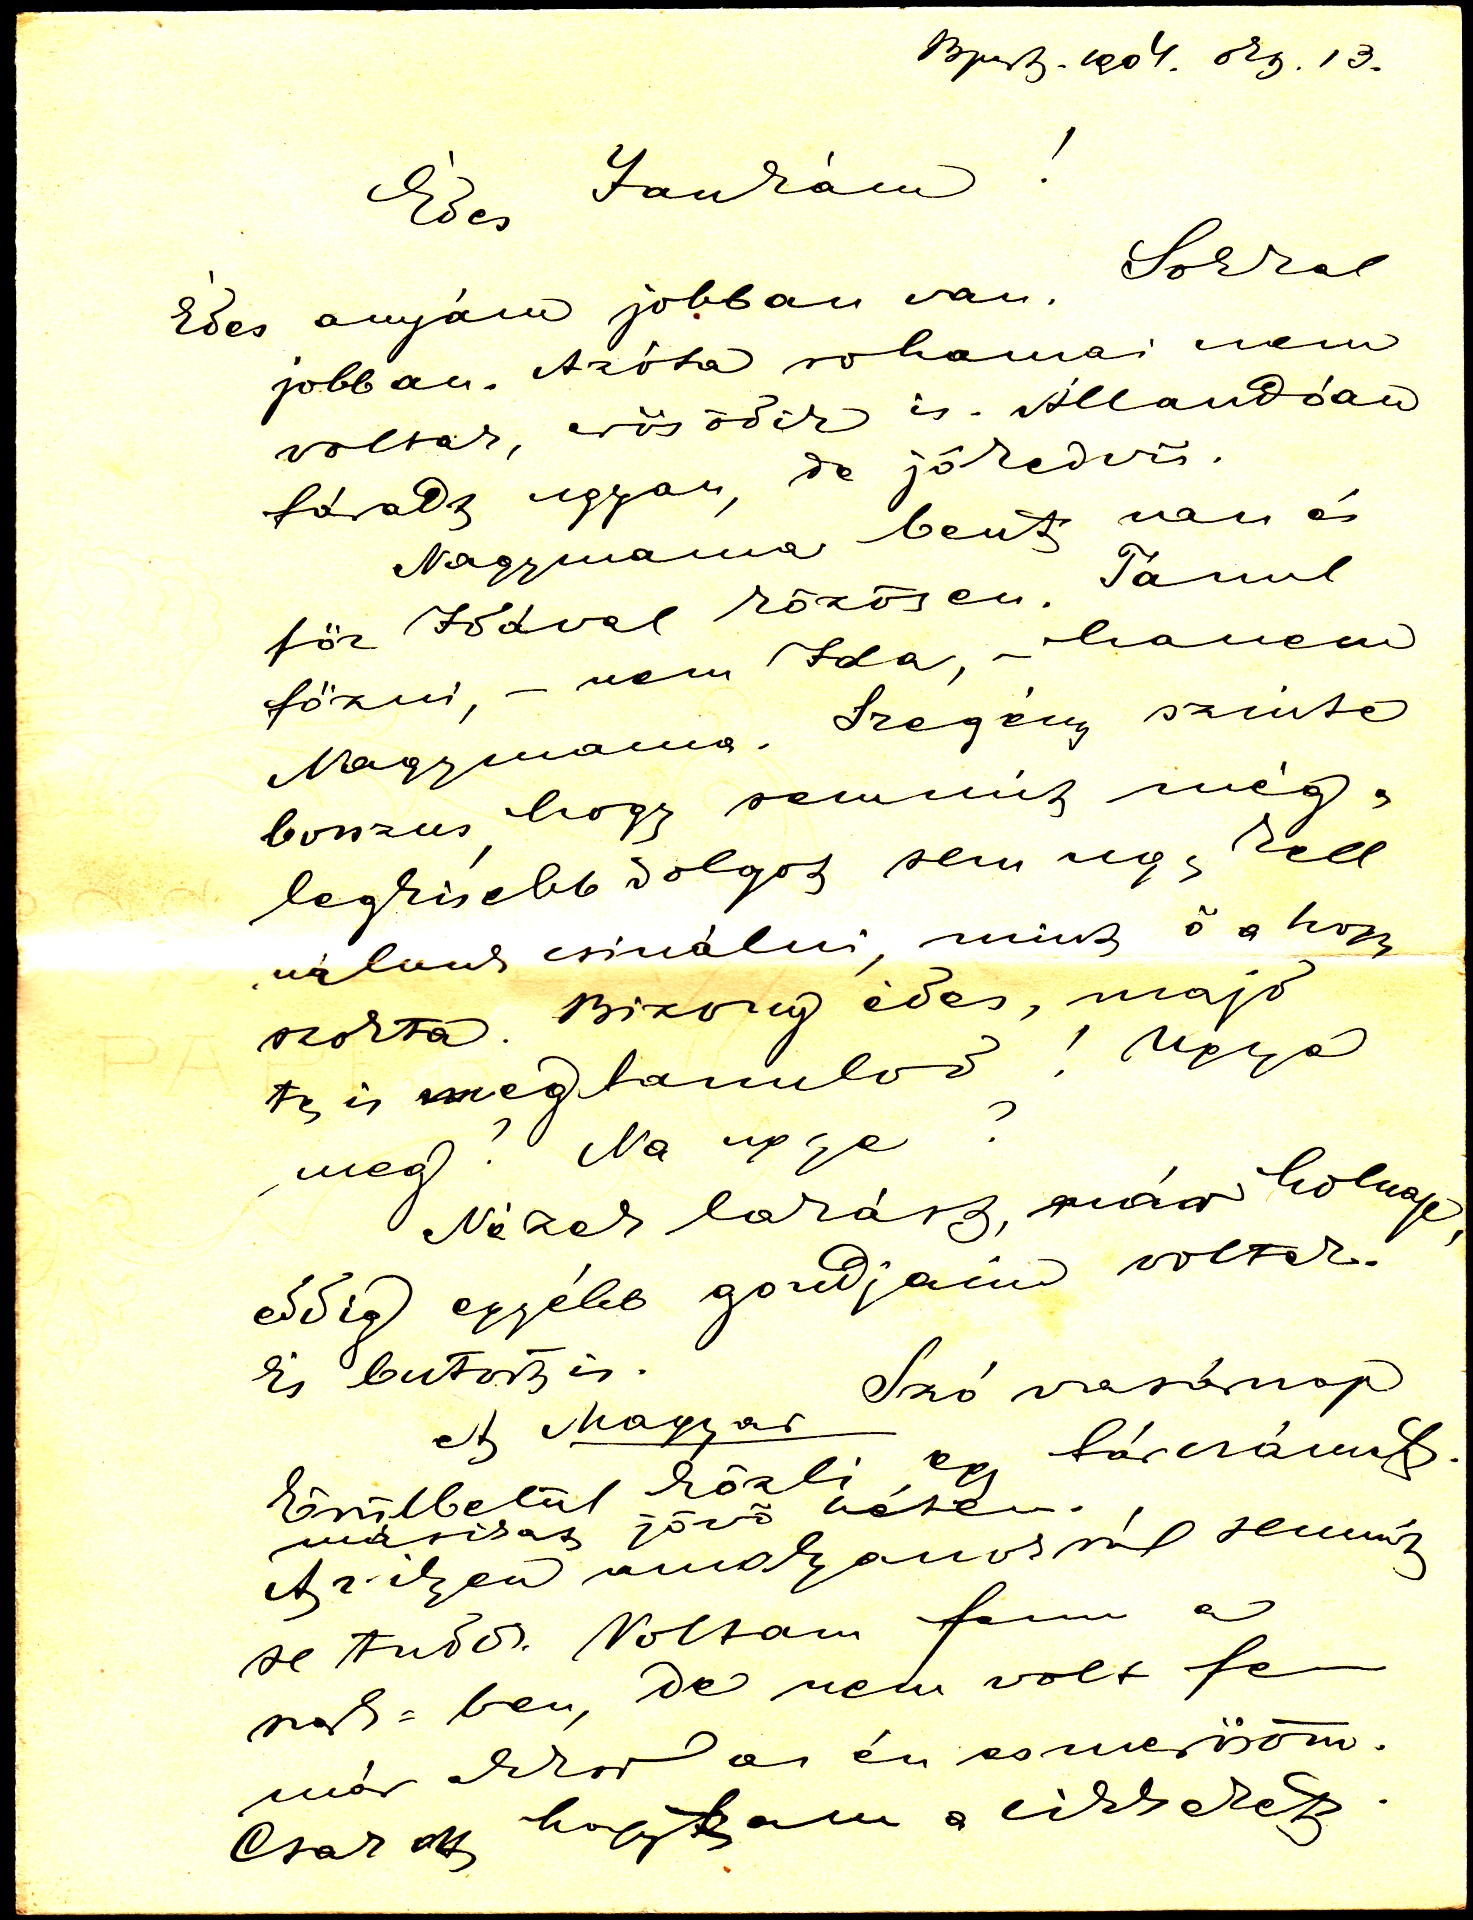 Bpest. 1904. okt. 13.
Édes Jankám!
Édes anyám jobban van. Sokkal
jobban. Azóta rohamai nem
voltak, erősödik is. Állandóan
fáradt ugyan, de jókedvü.
Nagymama bent van és
főz Idával közösen. Tanul
főzni, – nem Ida, – hanem
Nagymama. Szegény szinte
bosszus, hogy semmit még a
legkisebb dolgot sem ugy kell
nálunk csinálni, mint ő a hogy
szokta. Bizony édes, majd
te is megtanulod! Ugye
meg? Na ugye?
Nézek lakást, már holnap,
eddig egyébb gondjaim voltak.
És butort is.
A Magyar Szó vasárnap
körülbelül közli egy tárcámat.
másikat jövő héten.
Az ilyen
se tudok. Voltam fenn a
ben, de nem volt fenn
már akkor az én esmerősöm.
Csak ott hagytam a cikkeket.